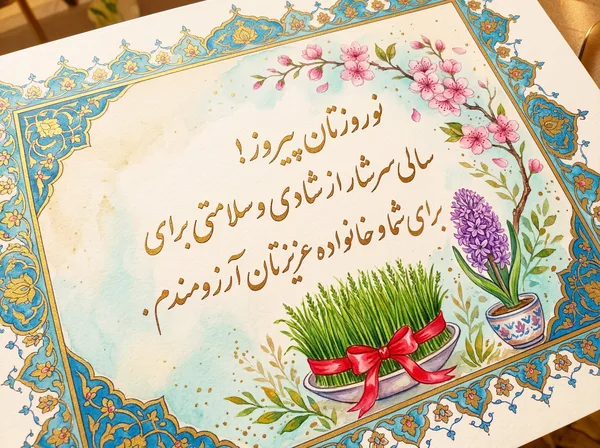 نوروزتان پیروز!
سالی سرشار از شادی و سلامتی برای
برای شما و خانواده عزیزتان آرزومندم.